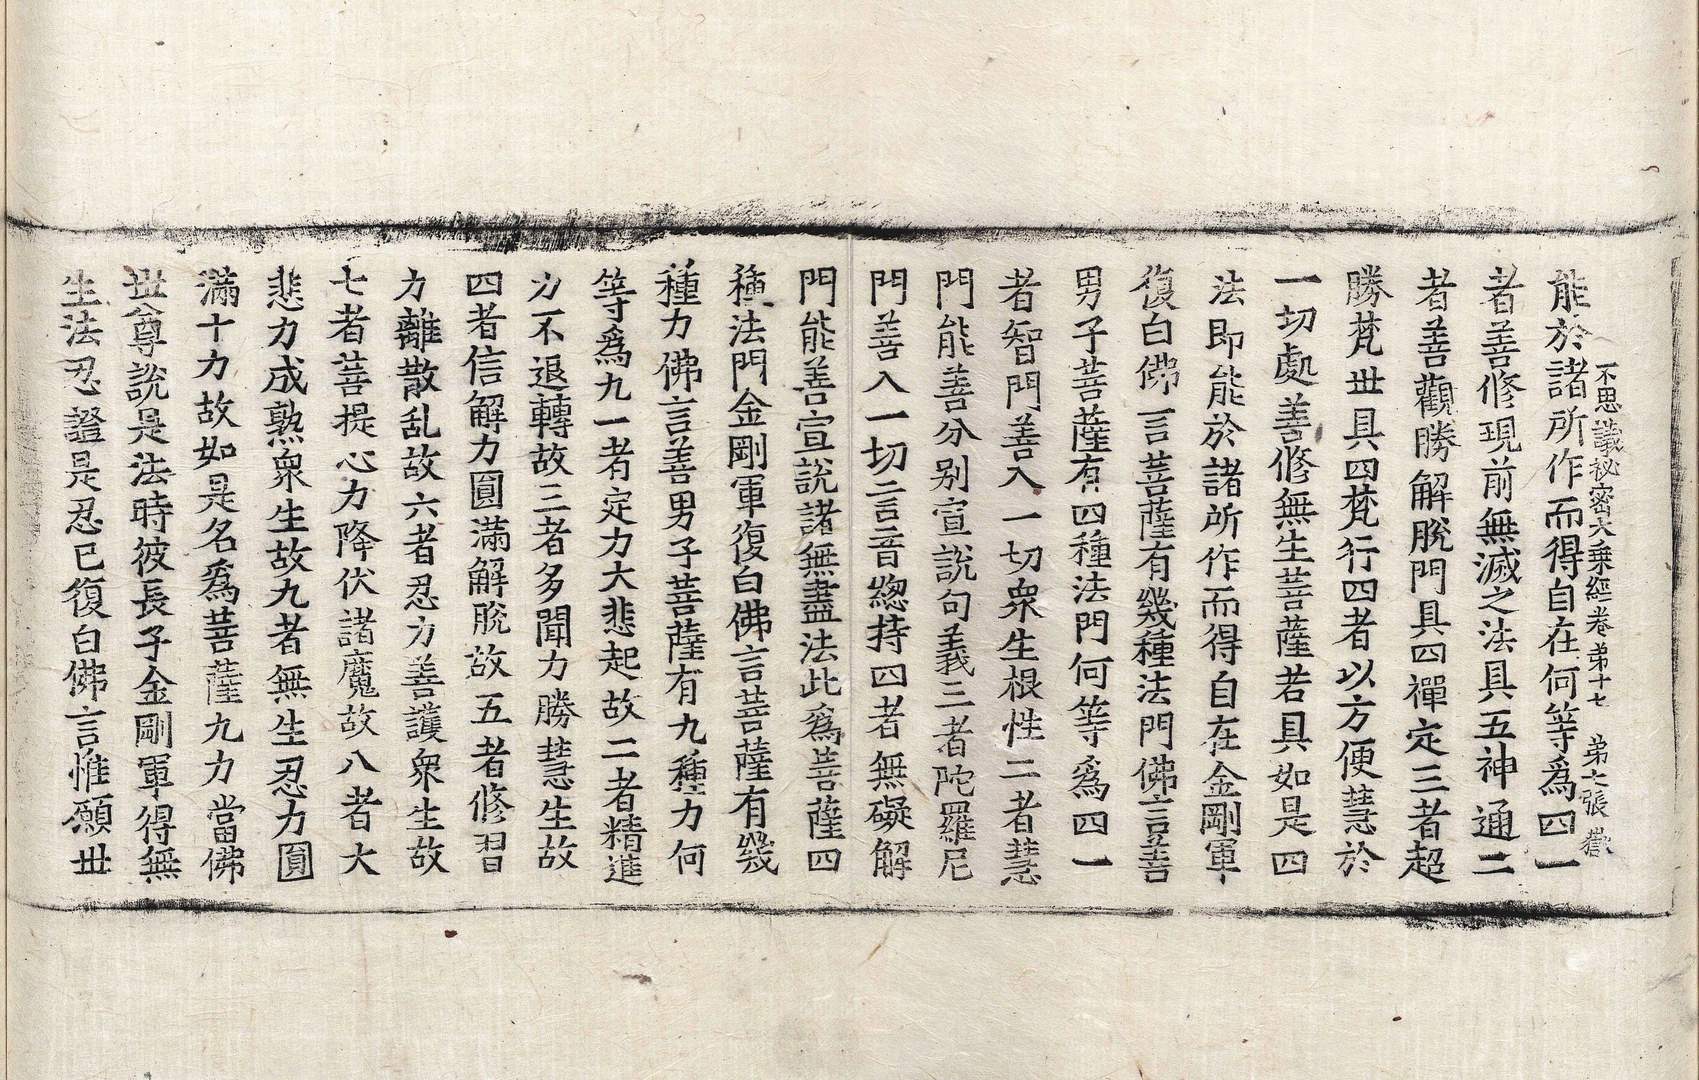 不思議秘密大乗經卷第十七 第七張 歡
能於諸所作而得自在何等爲四一
者善修現前無滅之法具五神通二
者善觀勝解脫門具四禪定三者超
勝梵丗具四梵行四者以方便慧於
一切處善修無生菩薩若具如是四
法即能於諸所作而得自在金剛軍
復白佛言菩薩有幾種法門佛言善
男子菩薩有四種法門何等爲四一
者智門善入一切衆生根性二者慧
門能善分別宣說句義三者陀羅尼
門善入一切言音緫持四者無礙解
門能善宣說諸無盡法此爲菩薩四
種法門金剛軍復白佛言菩薩有幾
種力佛言善男子菩薩有九種力何
等爲九一者定力大悲起故二者精進
力不退轉故三者多聞力勝慧生故
四者信解力圓滿解脫故五者修習
力離散乱故六者忍力善護衆生故
七者菩提心力降伏諸魔故八者大
悲力成熟衆生故九者無生忍力圓
滿十力故如是名爲菩薩九力當佛
丗尊說是法時彼長子金剛軍得無
生法忍證是忍已復白佛言惟願丗